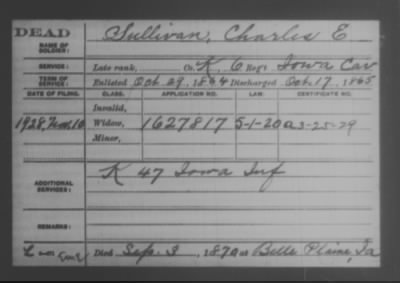 DEAD
Sullivan, Charles E
NAME OF
SOLDIER:
SERVICE:
Late rank, Co. K, 6 Reg't Iowa Cav
TERM OF
SERVICE:
Enlisted Oct. 29, 1864 Discharged Oct. 17, 1865
DATE OF FILING. CLASS. APPLICATION NO. LAW. CERTIFICATE NO.
Invalid,
1928, 16 Widow, 1627817 5-1-20 3-25-29
Minor,
ADDITIONAL
SERVICES:
K 47 Iowa Inf
REMARKS:
Died Sep. 3, 1870 at Belle Plaine, Ia